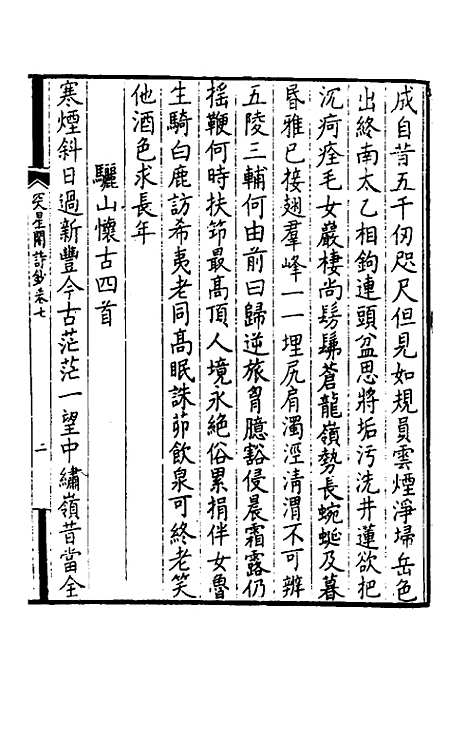 成自昔五千仞咫尺但見如規員雲煙淨埽岳色
出終南太乙相鉤連頭盆思將垢污洗井蓮欲把
沉疴痊毛女巖棲尚髣髴蒼龍嶺勢長蜿蜒及暮
昬雅已接翅羣峰一一埋尻肩濁涇清渭不可辨
五陵三輔何由前曰歸逆旅胷臆豁侵晨霜露仍
摇鞭何時扶笻最高頂人境永絶俗累捐伴女魯
生騎白鹿訪希夷老同高眠誅茆飲泉可終老笑
他酒色求長年
驪山懷古四首
寒煙斜日過新豐今古茫茫一望中繡嶺昔當全
星閣詩鈔卷七
二